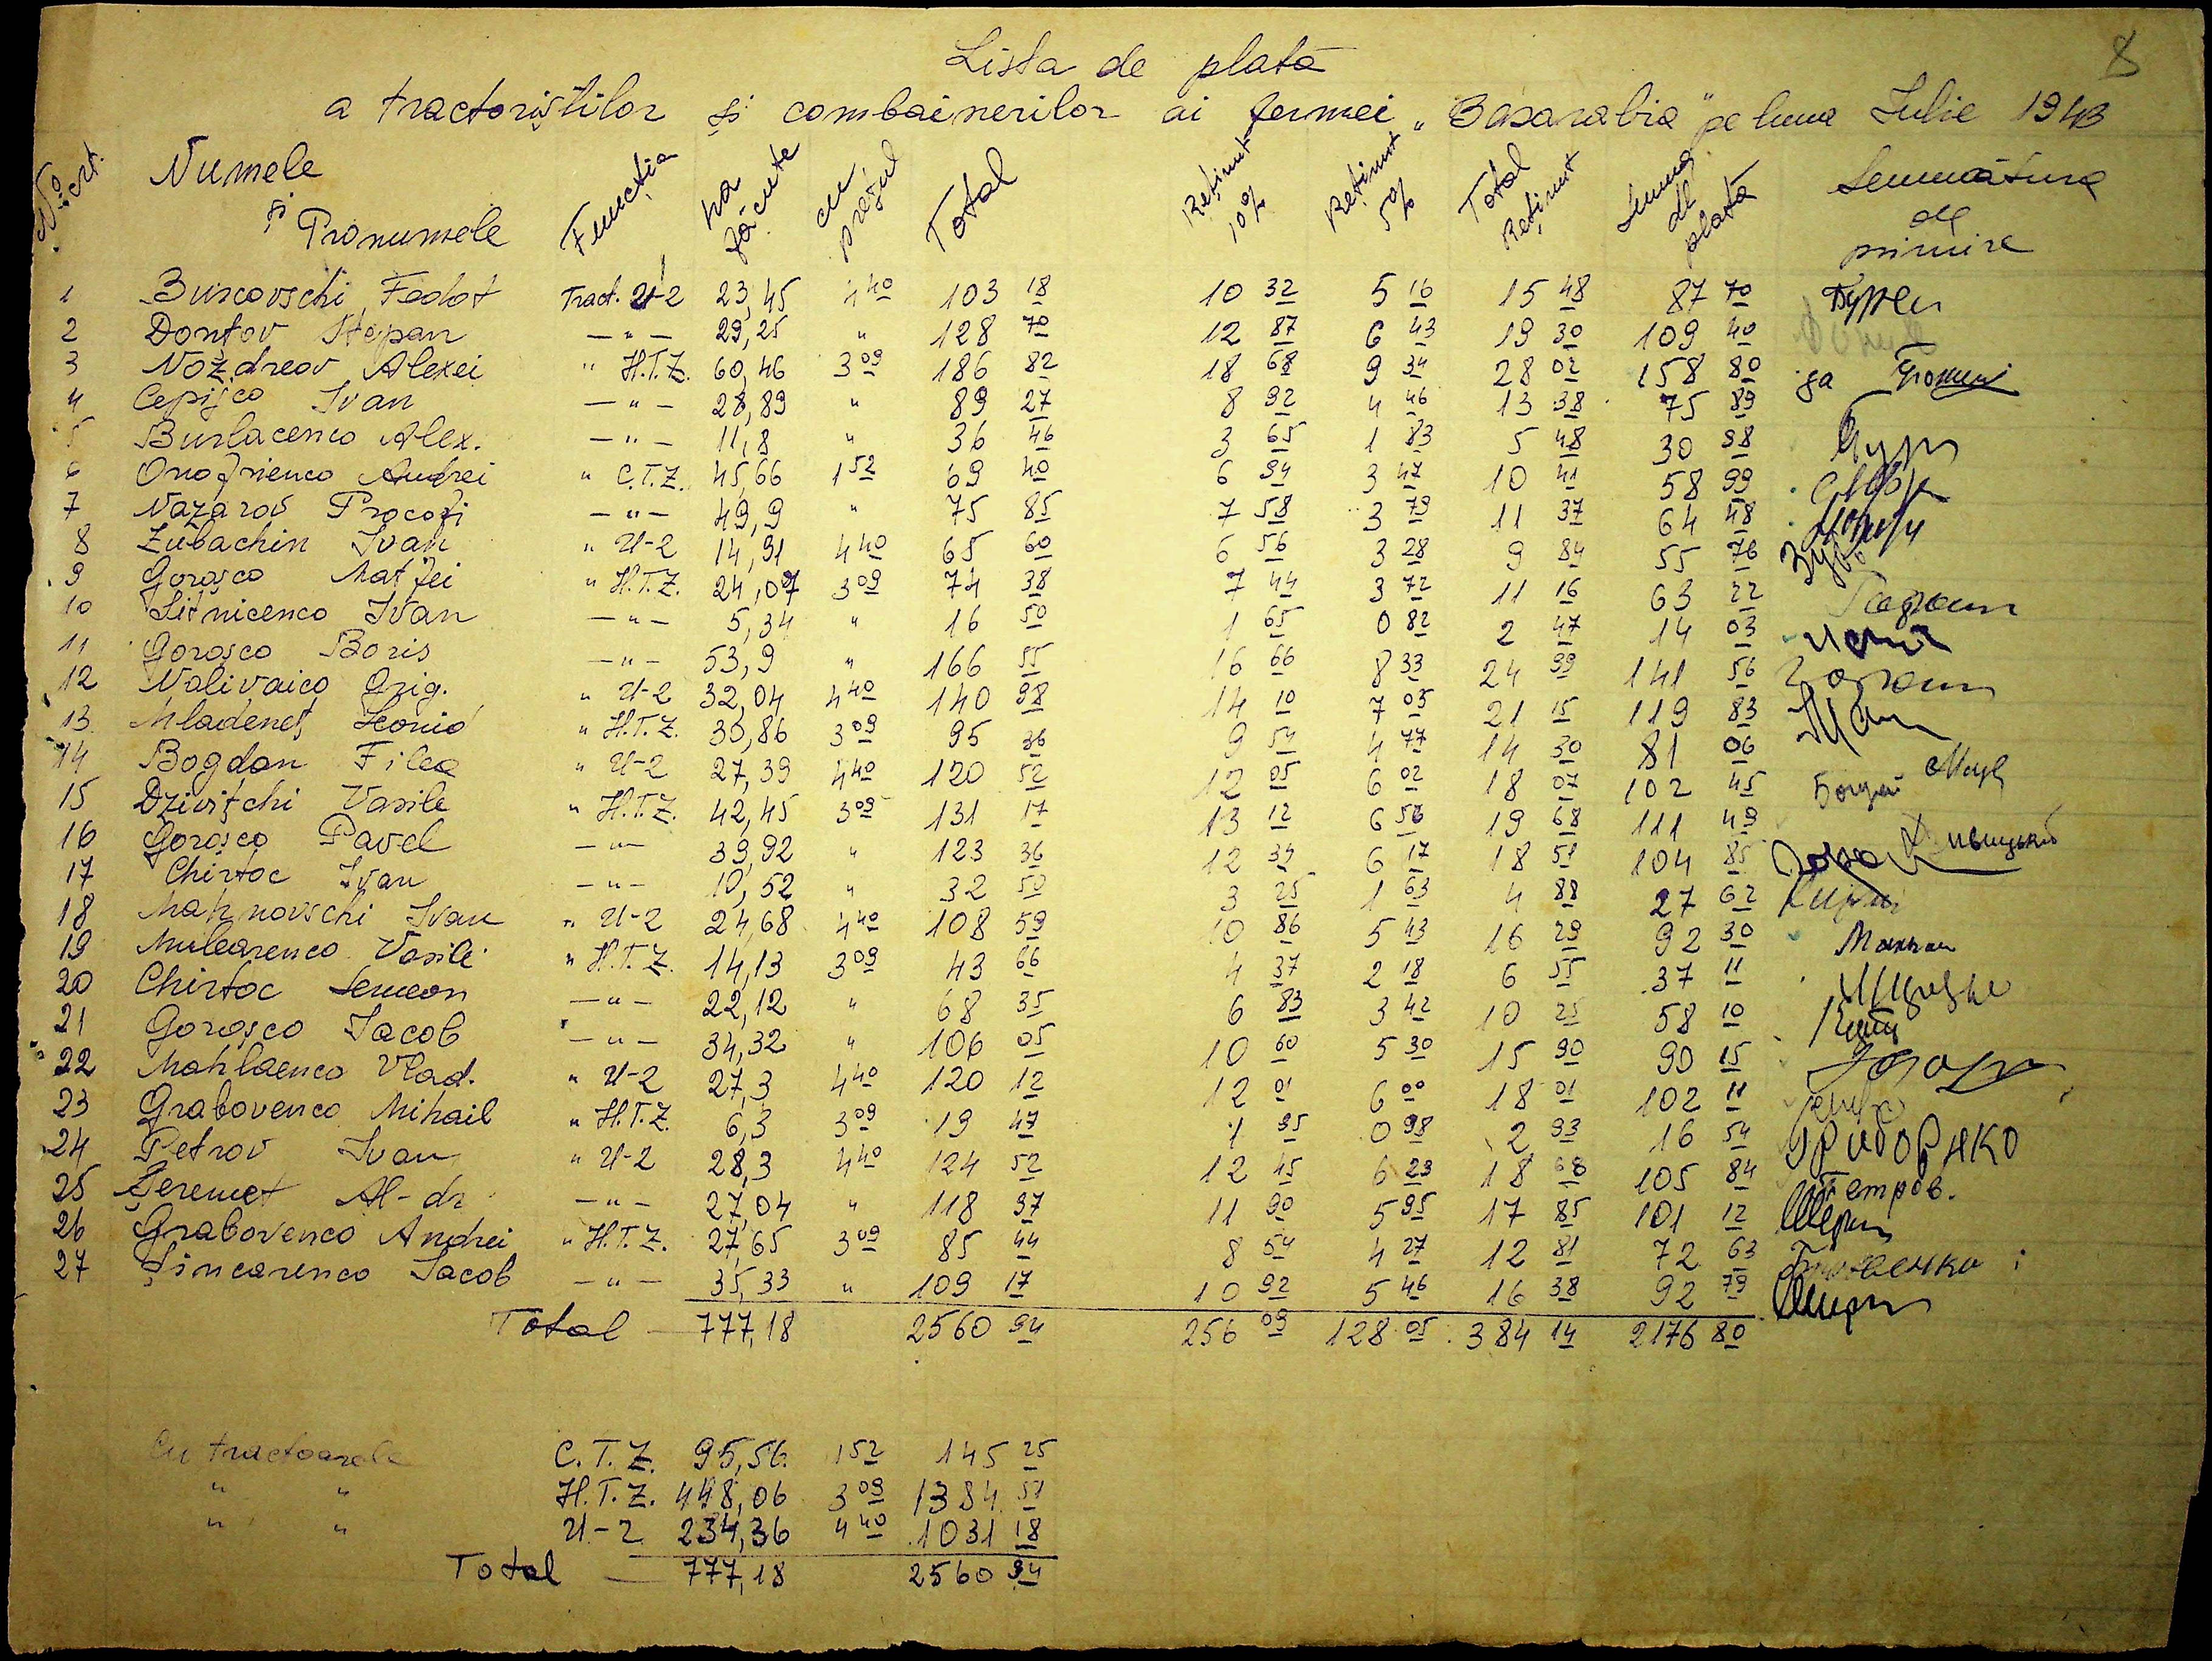 8
Lista de plată
a tractoriștilor și combainerilor ai fermei „Basarabia" pe luna Iulie 1943
No. crt. Numele și Pronumele Funcția ha făcute cu prețul Total Reținut 10% Reținut 5% Total Reținut Suma de plată Semnătura de primire
1 Burcovschi Fedot Tract. U-2 23,45 4 40 103 18 10 32 5 16 15 48 87 70
2 Donțov Stepan —"— 29,25 " 128 70 12 87 6 43 19 30 109 40
3 Nozdreov Alexei " H.T.Z. 60,46 3 09 186 82 18 68 9 34 28 02 158 80 за
4 Cepijco Ivan —"— 28,89 " 89 27 8 92 4 46 13 38 75 89
5 Burlacenco Alex. —"— 11,8 " 36 46 3 65 1 83 5 48 30 98
6 Onofrienco Andrei " C.T.Z. 45,66 1 52 69 40 6 94 3 47 10 41 58 99
7 Nazarov Procofi —"— 49,9 " 75 85 7 58 3 79 11 37 64 48
8 Zubachin Ivan " U-2 14,91 4 40 65 60 6 56 3 28 9 84 55 76
9 Gorașco Matfei " H.T.Z. 24,07 3 09 74 38 7 44 3 72 11 16 63 22
10 Sitnicenco Ivan —"— 5,34 " 16 50 1 65 0 82 2 47 14 03
11 Gorașco Boris —"— 53,9 " 166 55 16 66 8 33 24 99 141 56
12 Nalivaico Grig. " U-2 32,04 4 40 140 98 14 10 7 05 21 15 119 83
13 Mladeneț Leonid " H.T.Z. 30,86 3 09 95 36 9 54 4 77 14 30 81 06
14 Bogdan Filea " U-2 27,39 4 40 120 52 12 05 6 02 18 07 102 45
15 Dzivițchi Vasile " H.T.Z. 42,45 3 09 131 17 13 12 6 56 19 68 111 49
16 Gorașco Pavel —"— 39,92 " 123 36 12 34 6 17 18 51 104 85
17 Chirtoc Ivan —"— 10,52 " 32 50 3 25 1 63 4 88 27 62
18 Mahnovschi Ivan " U-2 24,68 4 40 108 59 10 86 5 43 16 29 92 30 Махнав
19 Mulearenco Vasile " H.T.Z. 14,13 3 09 43 66 4 37 2 18 6 55 37 11
20 Chirtoc Semeon —"— 22,12 " 68 35 6 83 3 42 10 25 58 10
21 Gorașco Iacob —"— 34,32 " 106 05 10 60 5 30 15 90 90 15
22 Mahlaenco Vlad. " U-2 27,3 4 40 120 12 12 01 6 00 18 01 102 11
23 Grabovenco Mihail " H.T.Z. 6,3 3 09 19 47 1 95 0 98 2 93 16 54
24 Petrov Ivan " U-2 28,3 4 40 124 52 12 45 6 23 18 68 105 84 Петров.
25 Șeremet Al-dr —"— 27,04 " 118 97 11 90 5 95 17 85 101 12
26 Grabovenco Andrei " H.T.Z. 27,65 3 09 85 44 8 54 4 27 12 81 72 63
27 Șincarenco Iacob —"— 35,33 " 109 17 10 92 5 46 16 38 92 79
Total — 777,18 2560 94 256 09 128 05 384 14 2176 80
Cu tractoarele C.T.Z. 95,56 1 52 145 25
" " H.T.Z. 448,06 3 09 1384 51
" " U-2 234,36 4 40 1031 18
Total — 777,18 2560 94